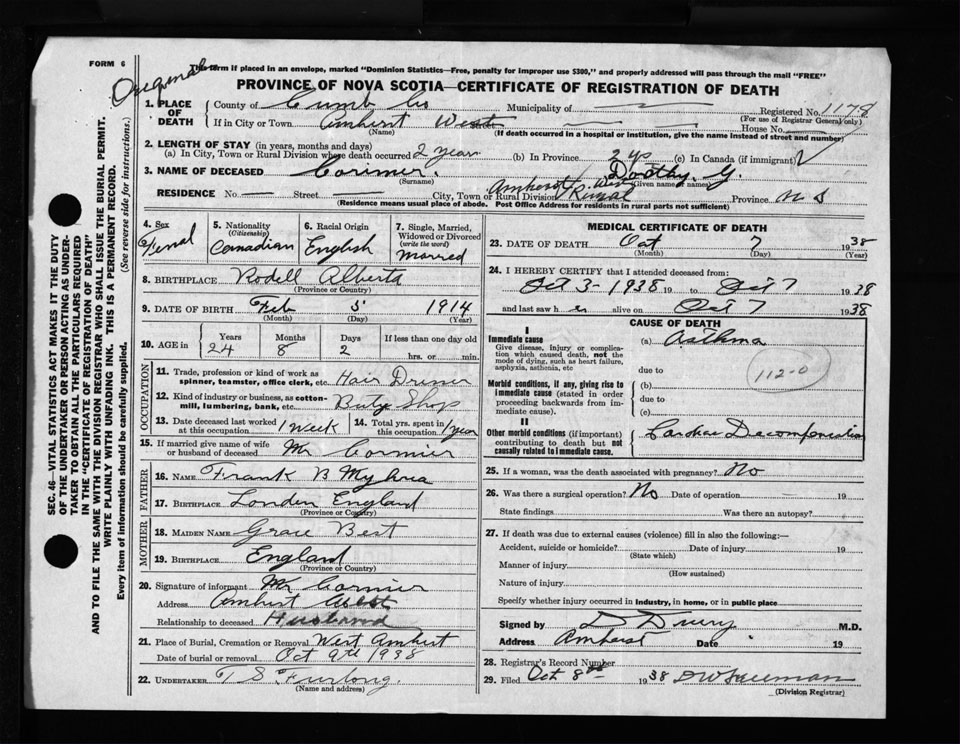 FORM 6
Original
This form if placed in an envelope, marked "Dominion Statistics—Free, penalty for improper use $300," and properly addressed will pass through the mail "FREE"
PROVINCE OF NOVA SCOTIA—CERTIFICATE OF REGISTRATION OF DEATH
1. PLACE OF DEATH County of Cumb Co Municipality of Registered No. 1178
(For use of Registrar General only)
If in City or Town Amherst West House No.
(Name) (If death occurred in a hospital or institution, give the name instead of street and number)
2. LENGTH OF STAY (in years, months and days)
(a) In City, Town or Rural Division where death occurred 2 year (b) In Province 2 ys (c) In Canada (if immigrant)
3. NAME OF DECEASED Cormier. Dorothy. G.
(Surname) (Given name or names)
RESIDENCE No. Street City, Town or Rural Division Amherst West Rural Province N S
(Residence means usual place of abode. Post Office Address for residents in rural parts not sufficient)
4. Sex Femal
5. Nationality (Citizenship) Canadian
6. Racial Origin English
7. Single, Married, Widowed or Divorced (write the word) Married
8. BIRTHPLACE Rodell Alberta
(Province or Country)
9. DATE OF BIRTH Feb 5 1914
(Month) (Day) (Year)
10. AGE in Years Months Days If less than one day old
24 8 2 hrs. or min.
OCCUPATION
11. Trade, profession or kind of work as spinner, teamster, office clerk, etc. Hair Dresser
12. Kind of industry or business, as cotton-mill, lumbering, bank, etc. Buty Shop
13. Date deceased last worked at this occupation 1 Week 14. Total yrs. spent in this occupation 1 year
15. If married give name of wife or husband of deceased Mr Cormier
FATHER
16. NAME Frank B
17. BIRTHPLACE London England
(Province or Country)
MOTHER
18. MAIDEN NAME Grace Best
19. BIRTHPLACE England
(Province or Country)
20. Signature of informant Mr Cormier
Address Amherst West
Relationship to deceased Husband
21. Place of Burial, Cremation or Removal West Amherst
Date of burial or removal Oct 9th 1938
22. UNDERTAKER T S Furlong.
(Name and address)
MEDICAL CERTIFICATE OF DEATH
23. DATE OF DEATH Oct 7 1938
(Month) (Day) (Year)
24. I HEREBY CERTIFY that I attended deceased from:
Oct 3-1938 19 to Oct 7 1938
and last saw h er alive on Oct 7 1938
CAUSE OF DEATH
I
Immediate cause (a) Asthma
Give disease, injury or complication which caused death, not the mode of dying, such as heart failure, asphyxia, asthenia, etc
due to
112-0
Morbid conditions, if any, giving rise to immediate cause (stated in order proceeding backwards from immediate cause).
(b)
due to
(c)
II
Other morbid conditions (if important) contributing to death but not causally related to immediate cause.
Cardiac Decompensation
25. If a woman, was the death associated with pregnancy? No
26. Was there a surgical operation? No Date of operation 19
State findings Was there an autopsy?
27. If death was due to external causes (violence) fill in also the following:—
Accident, suicide or homicide? Date of injury 19
(State which)
Manner of injury
(How sustained)
Nature of injury
Specify whether injury occurred in industry, in home, or in public place
Signed by D Drury M.D.
Address Amherst Date 19
28. Registrar's Record Number
29. Filed Oct 8th 1938 D W Freeman
(Division Registrar)
SEC. 46—VITAL STATISTICS ACT MAKES IT THE DUTY
OF THE UNDERTAKER OR PERSON ACTING AS UNDER-
TAKER TO OBTAIN ALL THE PARTICULARS REQUIRED
IN THE "CERTIFICATE OF REGISTRATION OF DEATH"
AND TO FILE THE SAME WITH THE DIVISION REGISTRAR WHO SHALL ISSUE THE BURIAL PERMIT.
WRITE PLAINLY WITH UNFADING INK. THIS IS A PERMANENT RECORD.
Every item of information should be carefully supplied. (See reverse side for instructions.)